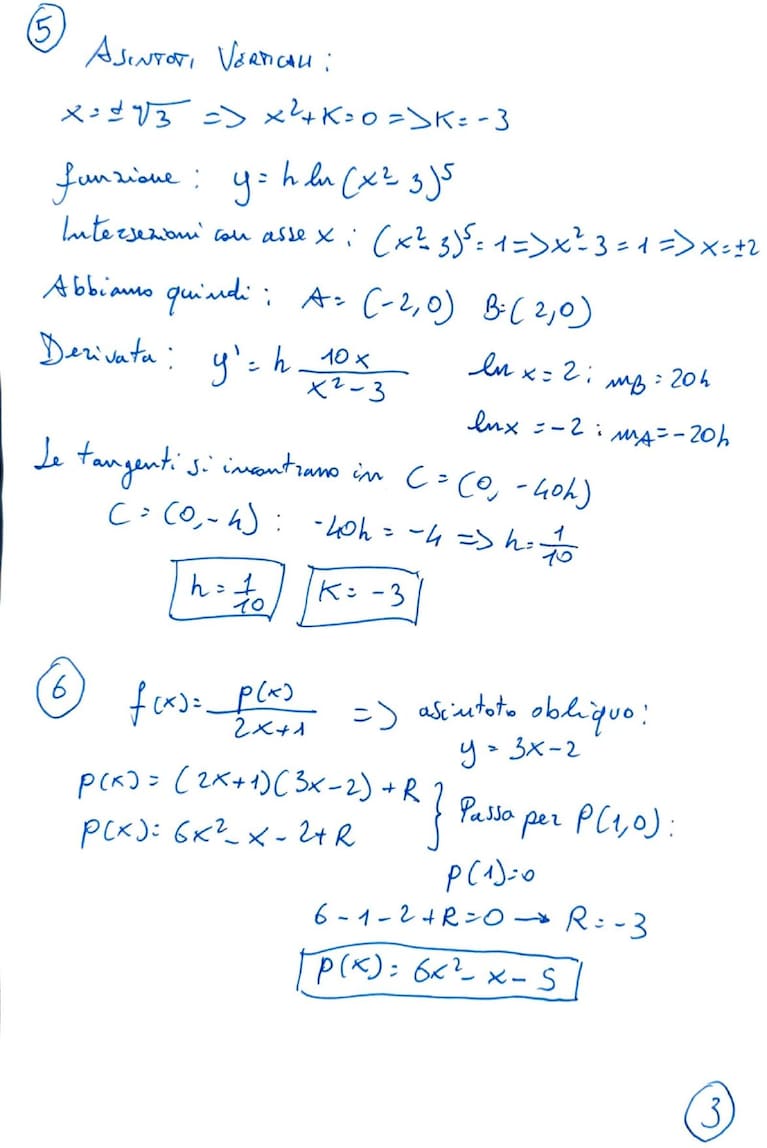 5
ASINTOTI VERTICALI:
x=±√3 => x²+K=0 => K=-3
funzione: y=h ln(x²-3)⁵
Intersezioni con asse x: (x²-3)⁵=1=>x²-3=1=>x=±2
Abbiamo quindi: A=(-2,0) B=(2,0)
Derivata: y'=h 10x/(x²-3) ln x=2: mB=20h
ln x=-2: mA=-20h
Le tangenti si incontrano in C=(0,-40h)
C=(0,-4): -40h=-4 => h=1/10
h=1/10 K=-3
6 f(x)=p(x)/(2x+1) => asintoto obliquo:
y=3x-2
p(x)=(2x+1)(3x-2)+R } Passa per P(1,0):
p(x)=6x²-x-2+R
p(1)=0
6-1-2+R=0 → R=-3
p(x)=6x²-x-5
3